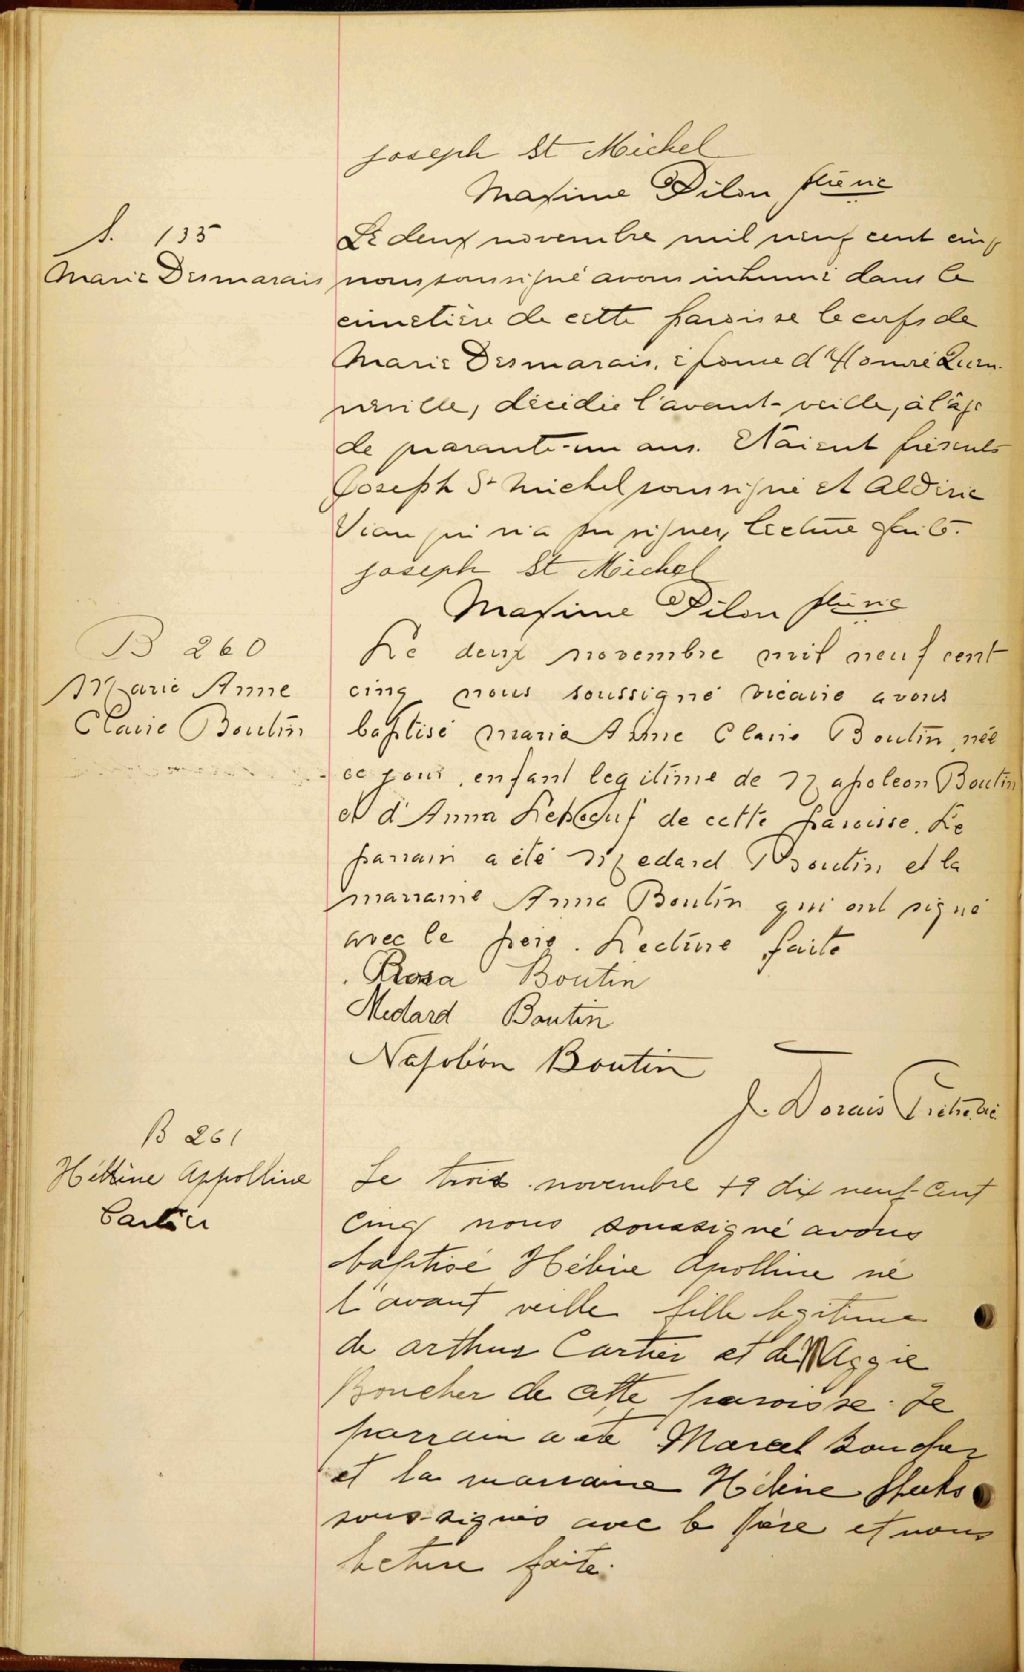 Joseph St Michel
Maxime Pilon ptre vic
S. 135
Marie Desmarais
Le deux novembre mil neuf cent cinq
nous soussigné avons inhumé dans le
cimetière de cette paroisse le corps de
Marie Desmarais, épouse d'Honoré Quen-
neville, décédée l'avant-veille, à l'âge
de quarante-un ans. Etaient présents
Joseph St Michel soussigné et Aldéric
Viau qui n'a pu signer, lecture faite.
Joseph St Michel
Maxime Pilon ptre vic
B 260
Marie Anne
Claire Boutin
Le deux novembre mil neuf cent
cinq nous soussigné vicaire avons
baptisé Marie Anne Claire Boutin née
ce jour, enfant legitime de Napoleon Boutin
et d'Anna Leboeuf de cette paroisse. Le
parrain a été Medard Boutin et la
marraine Anna Boutin qui ont signé
avec le père. Lecture faite
Rosa Boutin
Medard Boutin
Napoléon Boutin
J. Dorais Ptre vic.
B 261
Hélène Appolline
Cartier
Le trois novembre 19 dix neuf-cent
cinq nous soussigné avons
baptisé Hélène Apolline né
l'avant veille fille legitime
de arthur Cartier et de Maggie
Boucher de cette paroisse. Le
parrain a été Marcel Boucher
et la marraine Hélène
sous-signés avec le père et nous
lecture faite.